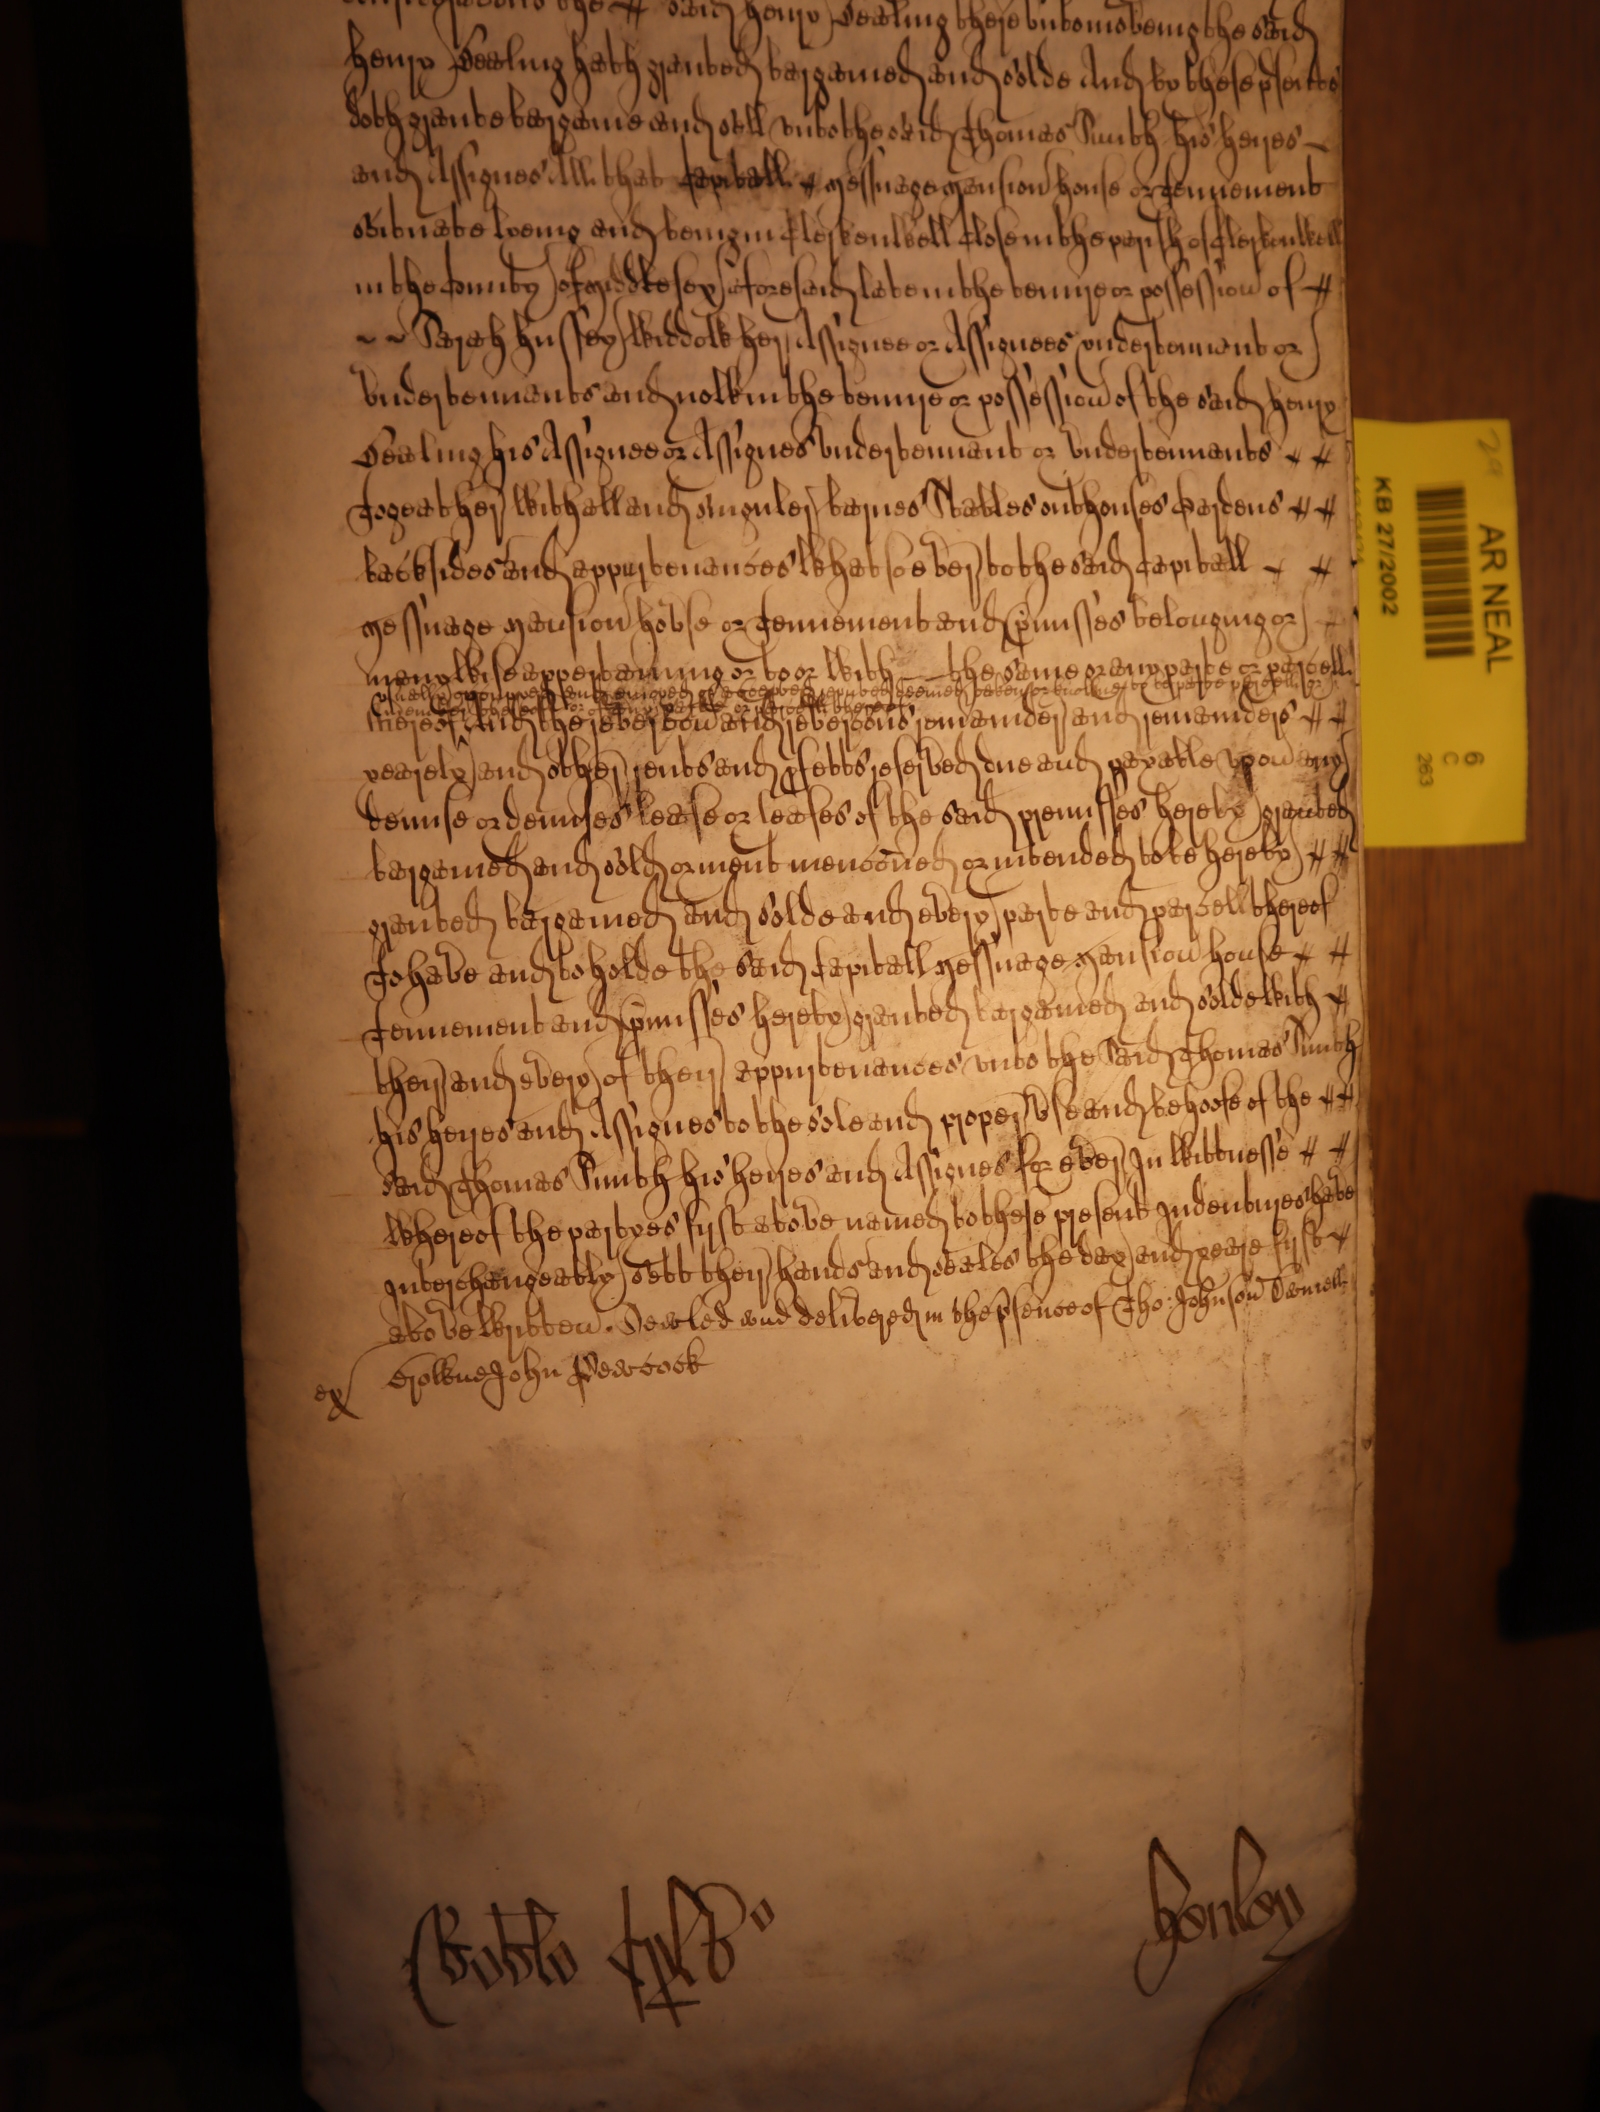 the # said henry Dealing there vnto moveing the said
henry Dealing hath graunted bargained and solde And by these psentes
doth graunte bargaine and sell vnto the said Thomas Smith his heyres ~
and Assignes All that Capitall # Messuage Mansion house or Tennement
Scituate lyeing and being in Clerkenwell Close in the parish of Clerkenwell
in the County of Middlesex aforesaid late in the tenure or possession of #
~ ~ Sarah hussey widdow her Assignee or Assignees vndertennant or
vndertennants and now in the tenure or possession of the said henry
Dealing his Assignee or Assignes vndertennant or vndertennants # #
Togeather with all and singuler barnes Stables outhouses Gardens # #
backsides and appurtenances whatsoever to the said Capitall ~ #
Messuage Mansion house or Tennement and pmisses belonging or
in any wise appertaining or to or with the same or any parte or parcell
reputed deemed taken or to be parte parcell or
or of any parte or parcell thereof
thereof And the revercon and revercons remainder and remainders # #
yearely and other rents and pfetts reserved due and payable vpon any
demise or demises lease or leases of the said premisses hereby graunted
bargained and sold or ment menconed or intended to be hereby # #
graunted bargained and solde and every parte and parcell thereof
To have and to holde the said Capitall Messuage Mansion house # #
Tennement and pmisses hereby graunted bargained and solde with #
their and every of their appurtenances vnto the said Thomas Smith
his heyres and Assignes to the sole and proper vse and behoofe of the # #
said Thomas Smith his heyres and Assignes for ever In wittnesse # #
whereof the partyes first above named to these present Indentures have
Interchangeably sett their hands and seales the day and yeare first #
above written. Sealed and delivered in the psence of Tho: Johnson
Browne John Peacock
ex
henley
AR NEAL
KB 27/2002
6
C
263